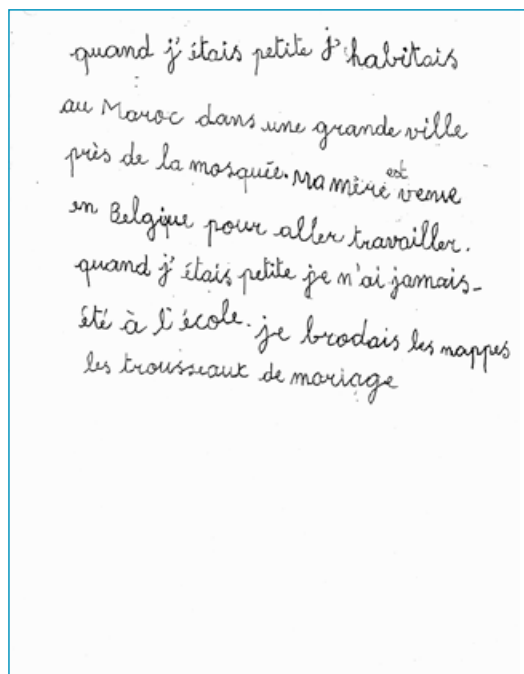 quand j'étais petite j'habitais
au Maroc dans une grande ville
près de la mosquée. Ma mère est venue
en Belgique pour aller travailler.
quand j'étais petite je n'ai jamais
été à l'école. je brodais les nappes
les trousseaux de mariage